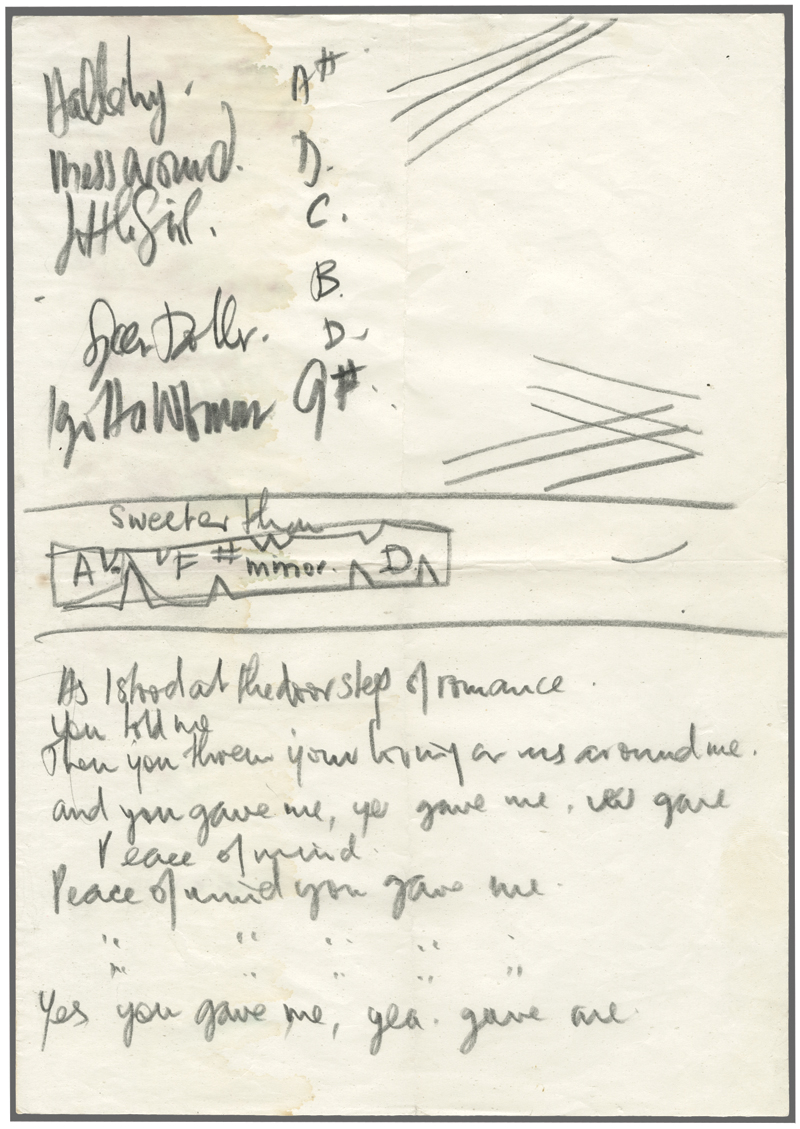 Halleluy. A#
Mess around. D.
Little Girl. C.
B.
D.
I gotta Woman G#.
Sweeter than
A F # minor. D.
As I stood at the doorstep of romance.
you told me
Then you threw your loving arms around me.
and you gave me, yes gave me, yes gave
Peace of mind.
Peace of mind you gave me.
" " " " "
" " " " "
Yes you gave me, yea. gave me.